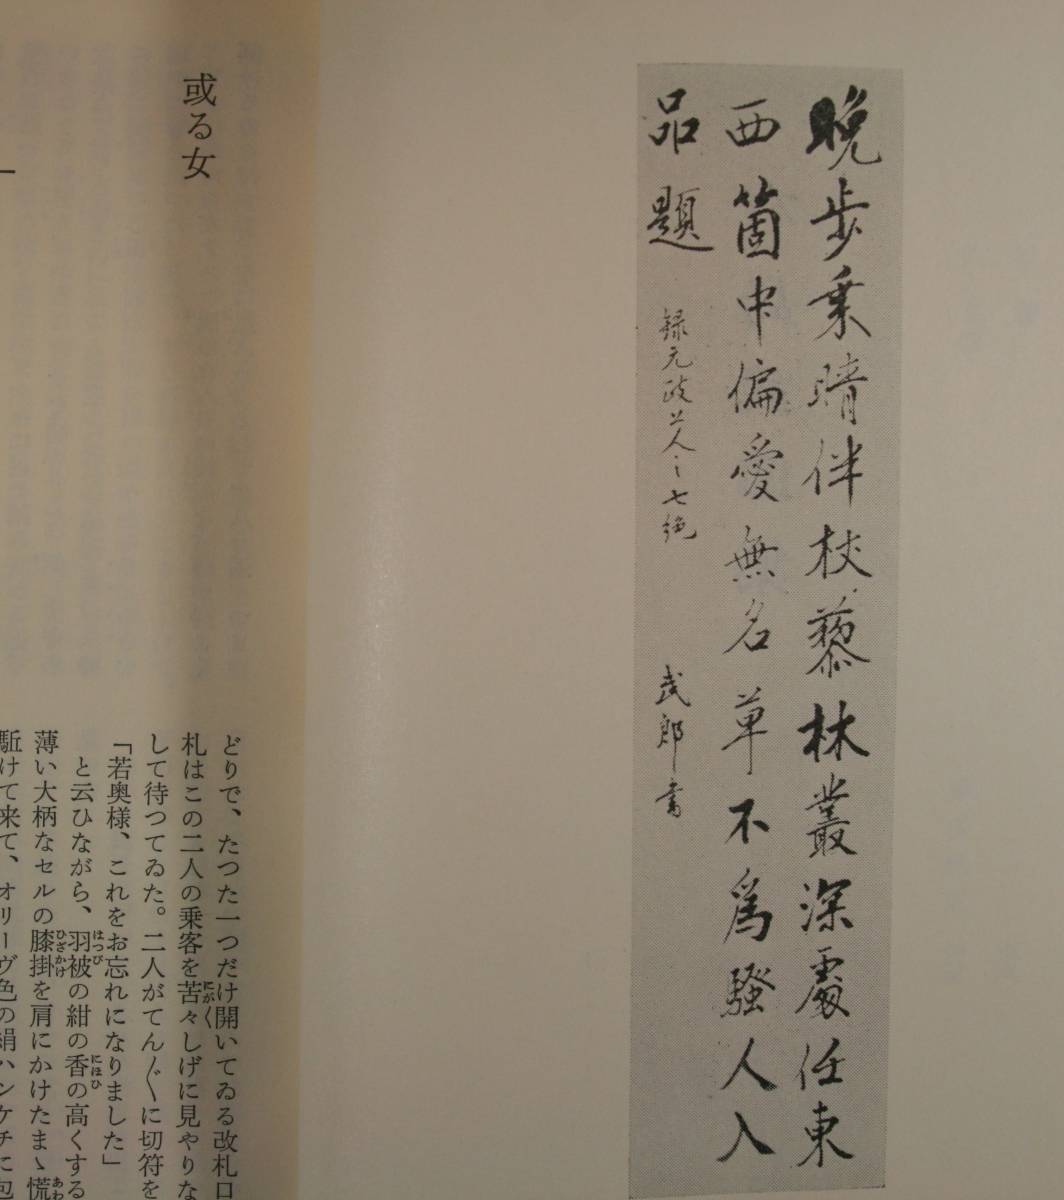 晩歩乗晴伴杖藜林叢深處任東
西箇中偏愛無名草不爲騒人入
品題
録元政上人之七絶
武郎書
或る女
一
どりで、たつた一つだけ開いてゐる改札口
札はこの二人の乗客を苦々しげに見やりな
にがく
して待つてゐた。二人がてん〴〵に切符を
「若奥様、これをお忘れになりました」
と云ひながら、羽被の紺の香の高くする
はつぴ
にほひ
薄い大柄なセルの膝掛を肩にかけたまゝ慌
ひざかけ
あわ
駈けて来て、オリーヴ色の絹ハンケチに包